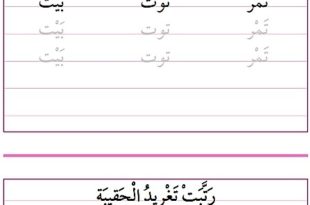 تَمْر توت بَيْت
تَمْر توت بَيْت
تَمْر توت بَيْت
رَتَّبَتْ تَغْريدُ الْحَقيبَةِ